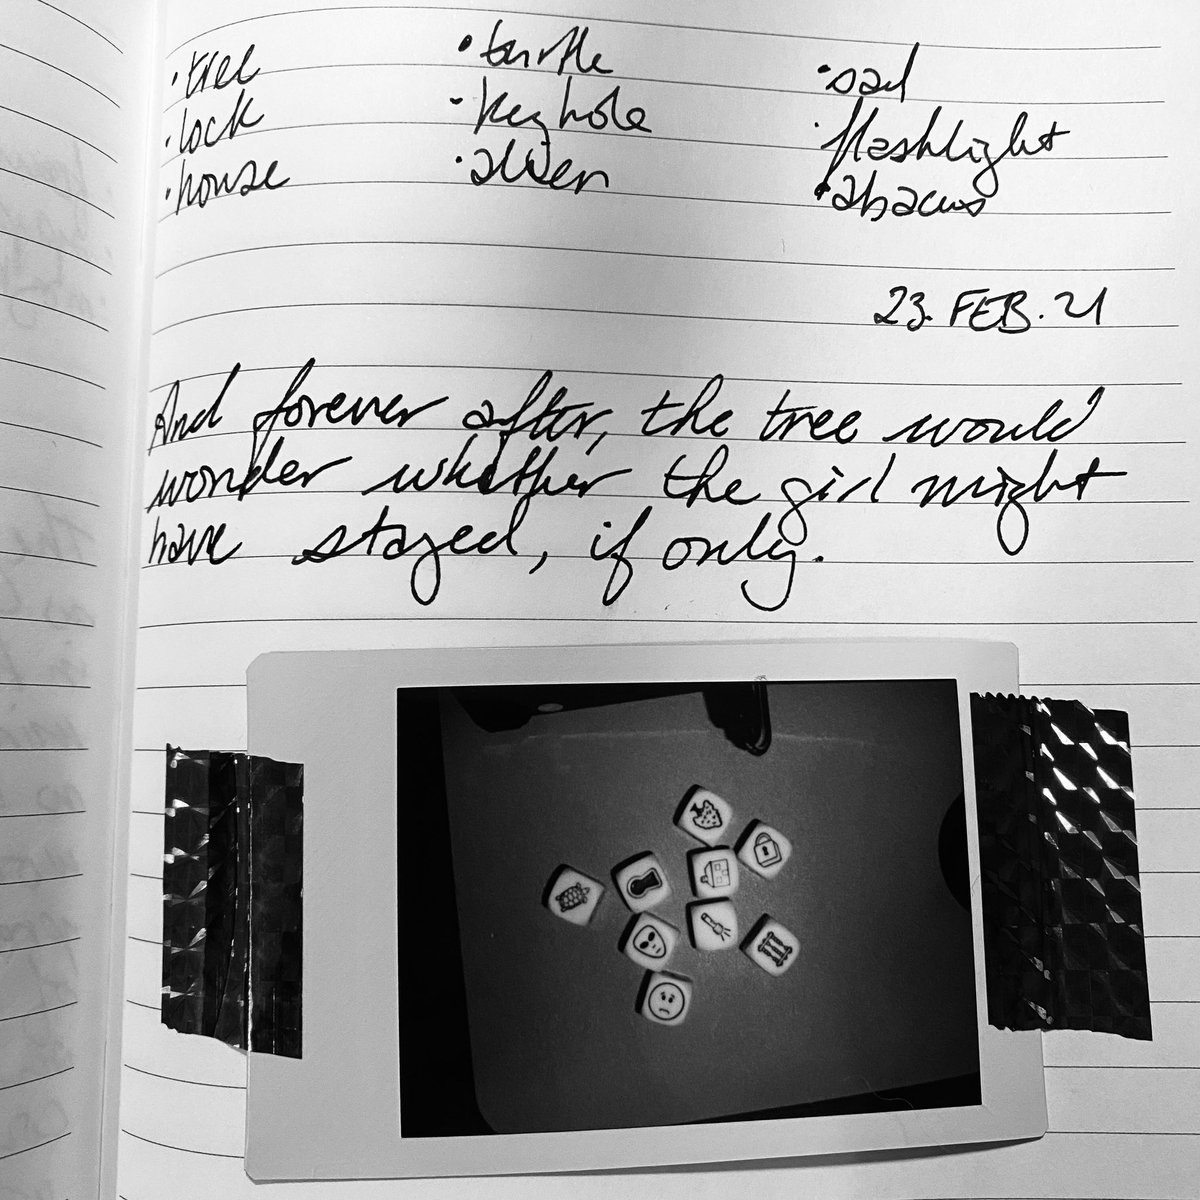 • tree
• lock
• house
• turtle
• keyhole
• alien
• sad
• flashlight
• abacus
23. FEB. 21
And forever after, the tree would
wonder whether the girl might
have stayed, if only.